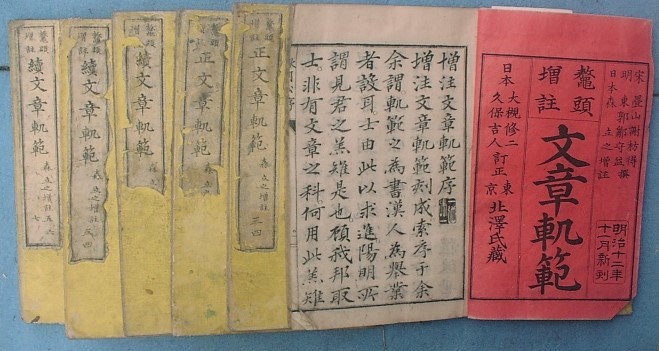 宋 疊山謝枋得撰
明 東郭鄒守益
日本 森立之增注
鼇頭
增註
文章軌範
明治十二年
十一月新刻
日本
大槻修二
久保吉人訂正
東京 北澤氏藏
增注文章軌範序
增注文章軌範刻成索序于余
余謂軌範之為書漢人為舉業
者設耳士由此以求進陽明所
謂見君之羔雉是也顧我邦取
士非有文章之科何用此羔雉
鼇頭
增註
正文章軌範
森立之增註 三四
正文章軌範
鼇頭
增註
續文章軌範
森立之增註
鼇頭
增註
續文章軌範
森立之增註 三四
鼇頭
增註
續文章軌範
森立之增註 五六七